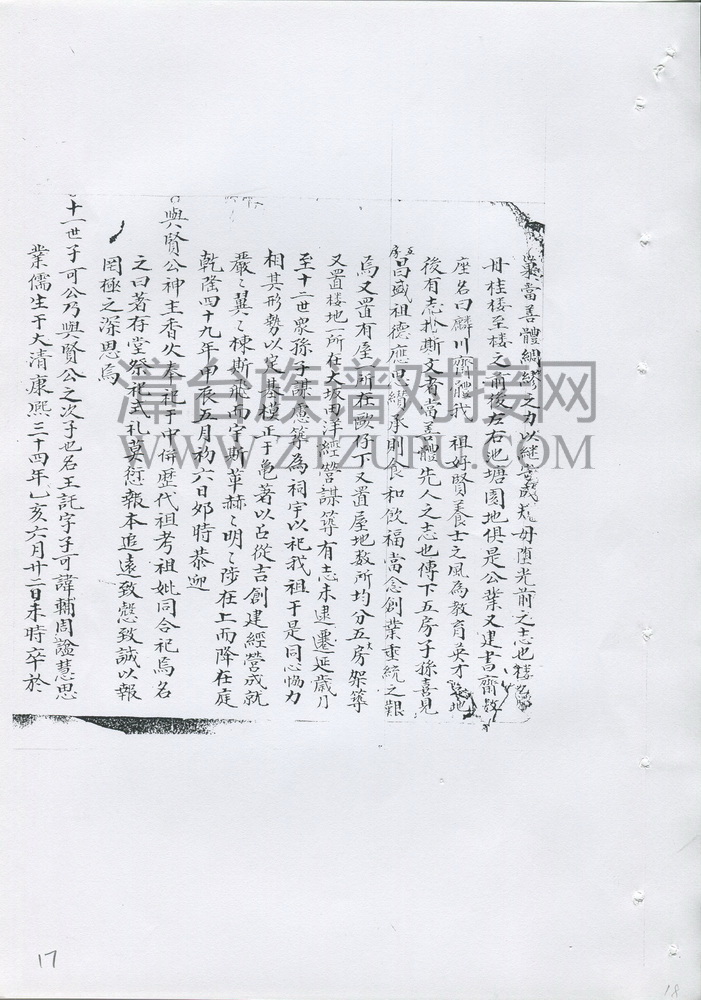 當善體綢繆之力以繼
毋墮光前之志也樓名
丹桂樓至樓之前後左右池塘園地俱是公業又建書齋数
座名曰麟川齋體我 祖好賢養士之風為教育英才 地
後有志於斯文者當善體先人之志也傳下五房子孫喜見
五房昌盛祖德應思纘承則食和飲福當念創業垂統之艱
焉又置有屋一所在歐仔下又置屋地数所均分五大房架築
又置樓地一所在大坂田洋經營謀築有志未逮遷延歲月
至十一世衆孫子謀應築為祠宇以祀我祖于是同心恊力
相其形勢以定基模正于亀著以占從吉創建經營成就
嚴〻翼〻棟斯飛而宇斯革赫〻明〻陟在上而降在庭
乾隆四十九年甲辰五月初六日夘時恭迎
與賢公神主香火奉祀于中併歴代祖考祖妣同合祀焉名
之曰著存堂祭祀式礼莫愆報本追遠致慤致誠以報
罔極之深思焉
十一世子可公乃與賢公之次子也名王託字子可諱輔周諡慧思
業儒生于大清康熙三十四年乙亥六月廿二日未時卒於
漳台族谱对接网
WWW.ZTZUPU.COM
17
18